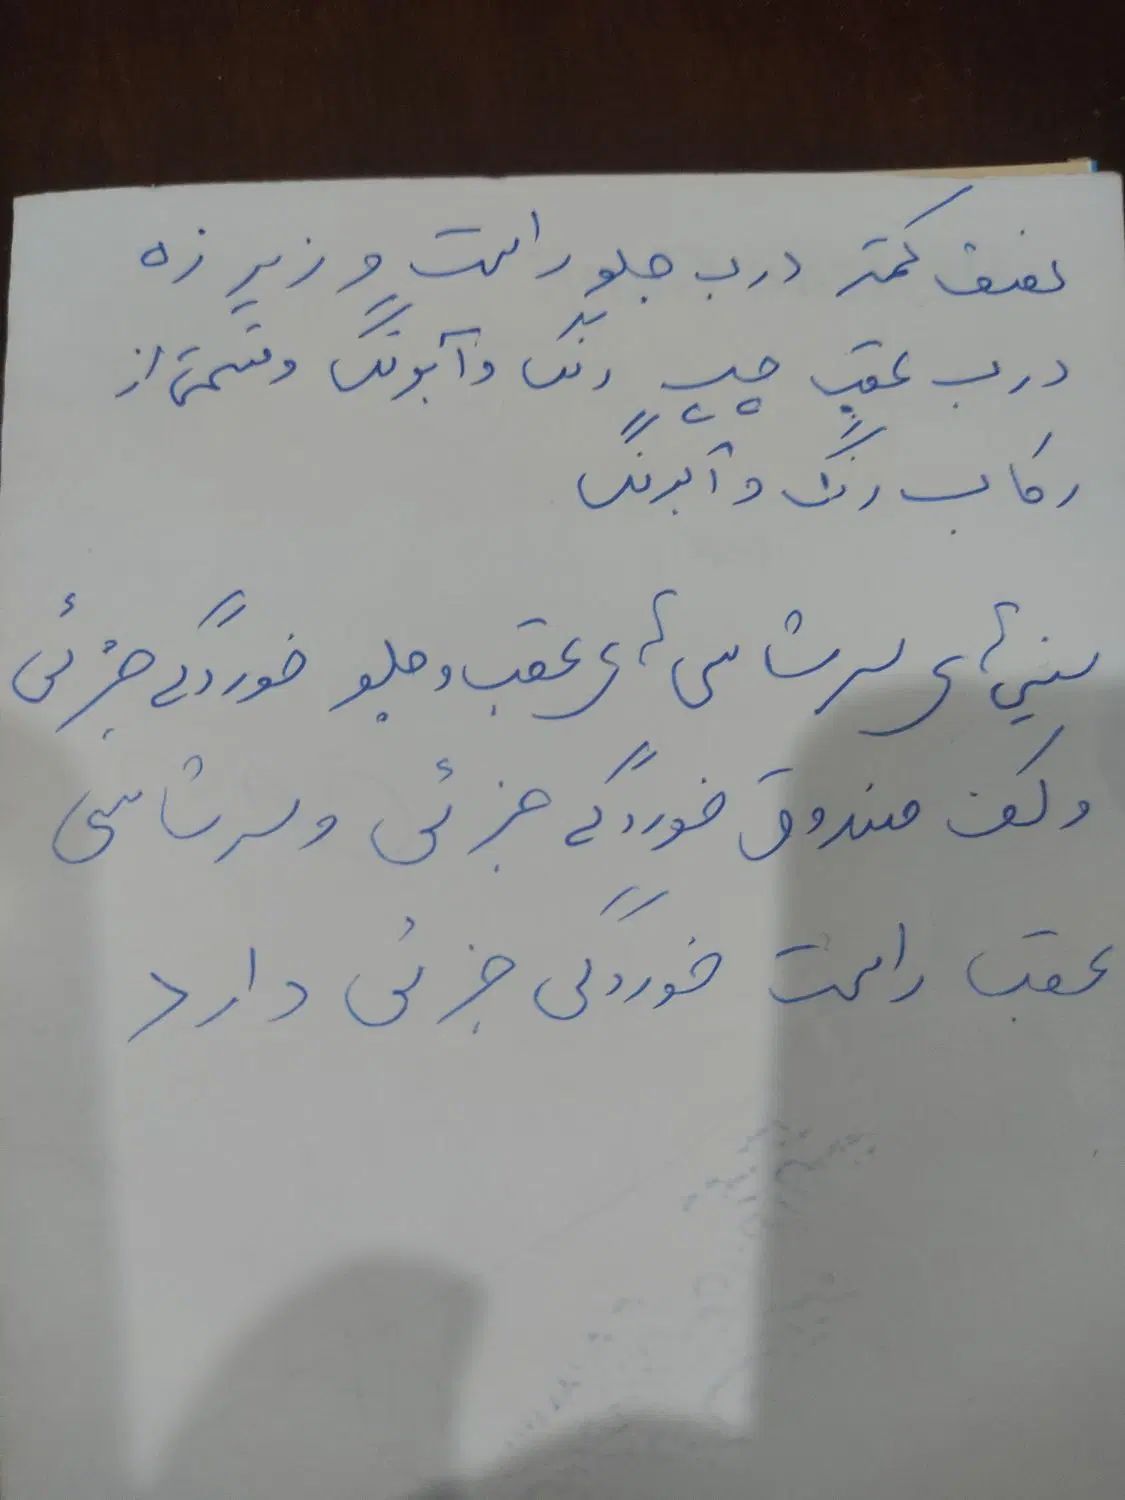 نصف کمتر درب جلو راست و زیر زه
درب عقب چپ رنگ و آبرنگ و قسمتی از
رکاب رنگ و آبرنگ
سینی های سرشاسی های عقب و جلو خوردگی جزئی
و کف صندوق خوردگی جزئی و سرشاسی
عقب راست خوردگی جزئی دارد